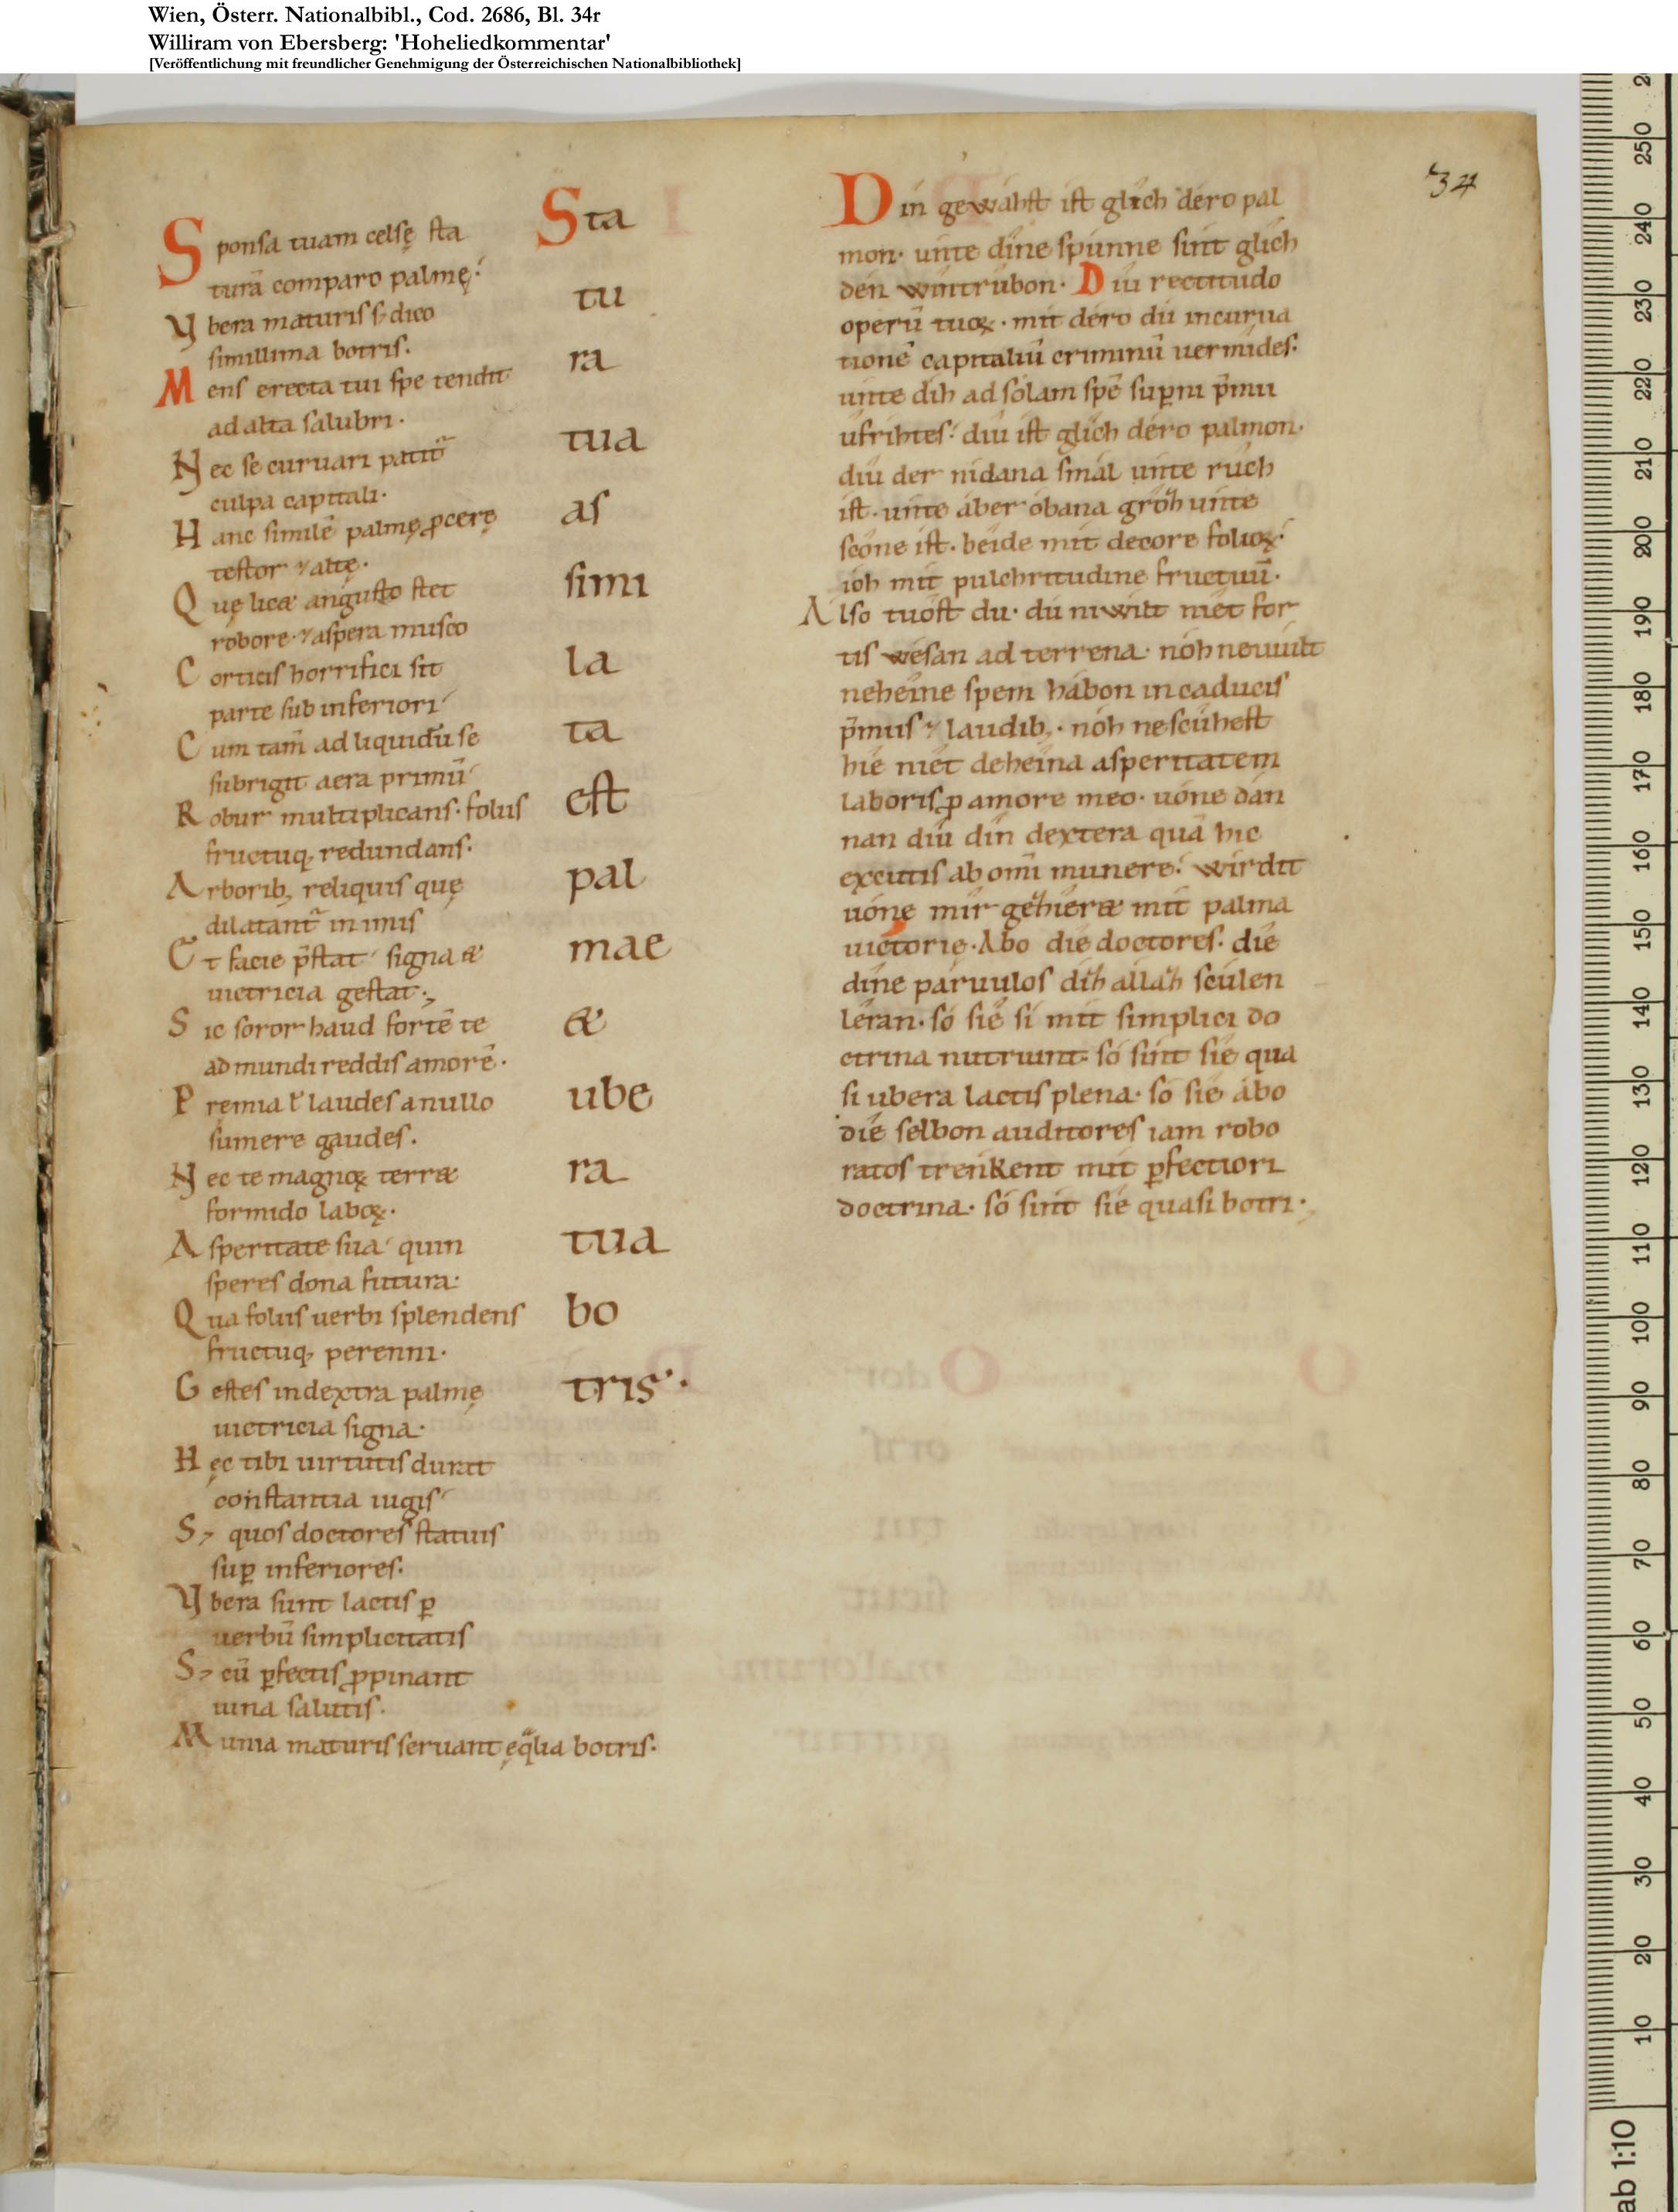 Wien, Österr. Nationalbibl., Cod. 2686, Bl. 34r
Williram von Ebersberg: 'Hoheliedkommentar'
[Veröffentlichung mit freundlicher Genehmigung der Österreichischen Nationalbibliothek]
34
Sponſa tuam celſę ſta
turā comparo palmę.
Ybera maturiſ ſ; dico
ſimillima botriſ.
Menſ erecta tui ſpe tendit
ad alta ſalubri.
Nec ſe curuari patit᷑
culpa capitali.
Hanc ſimilē palmę ꝓcerę
teſtor ⁊ altę.
Quę licæ anguſto ſtet
robore. ⁊ aſpera muſco
Corticiſ horrifici ſit
parte ſub inferiori
Cum tam̄ ad liquidū ſe
ſubrigit aera primū
Robur multiplicanſ. foliiſ
fructuq; redundanſ.
Arborib; reliquiſ quę
dilatant᷑ in imiſ
Et facie p̄ſtat ſigna æ
uictricia geſtat.
Sic ſoror haud fortē te
ad mundi reddiſ amorē.
Premia ł laudeſ a nullo
ſumere gaudeſ.
Nec te magnoꝝ terræ
formido laboꝝ.
Aſperitate ſua quin
ſpereſ dona futura.
Qua foliiſ uerbi ſplendenſ
fructuq; perenni.
Geſteſ in dextra palmę
uictricia ſigna.
Hęc tibi uirtutiſ durat
conſtantia iugiſ
S; quoſ doctoreſ ſtatuiſ
sup̱ inferioreſ.
Ybera ſunt lactiſ ꝑ
uerbū ſimplicitatiſ
S; cū ꝑfectiſ ꝓpinant
uina ſalutiſ.
Munia maturiſ ſeruant ęq̄lia botriſ.
Sta
tu
ra
tua
aſ
ſimi
la
ta
eſt
pal
mae
æ
ube
ra
tua
bo
tris.
Din gewáhſt iſt glich déro pal
mon. unte dîne ſpúnne ſint glich
dén wintrúbon. Diu rectitudo
operū tuoꝝ. mit déro dú incurua
tionē capitaliū criminū uermídeſ.
unte dih ad ſolam ſpē ſuꝑni p̄mii
ûfríhteſ. diu iſt glich déro palmon.
diu der nidana ſmál unte rûch
iſt. unte áber óbana gróh unte
ſcóne iſt. beide mit decore folioꝝ.
ioh mit pulchritudine fructuū.
Alſo tuoſt du. du niwilt niet for
tiſ wéſan ad terrena. nóh neuuilt
neheine ſpem hábon in caduciſ
p̄miiſ ⁊ laudib;. nóh neſcúheſt
hie niet deheina aſperitatem
laboriſ ꝓ amore meo. uóne dán
nan diu din dextera quā hic
excutiſ ab omi munere. wirdit
uóne mir gehieræ mit palma
uictorię. Abo die doctoreſ. die
dine paruuloſ dih allah ſculen
léran. ſo ſie ſi mit ſimplici do
ctrina nutriunt. ſó ſint ſie qua
ſi ubera lactiſ plena. ſo ſie ábo
die ſelbon auditoreſ iam robo
ratoſ trenkent mit ꝑfectiori
doctrina. ſó ſint ſie quaſi botri.
10
20
30
40
50
60
70
80
90
100
110
120
130
140
150
160
170
180
190
200
210
220
230
240
250
ab 1:10